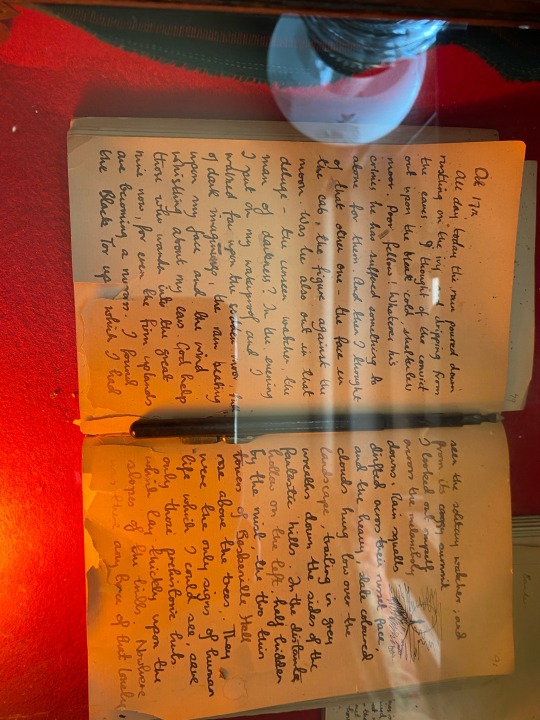 Oct 17th
All day today the rain poured down
rustling on the ivy dripping from
the eaves. I thought of the convict
out upon the bleak, cold, shelterless
moor. Poor fellow! Whatever his
crimes he has suffered something to
atone for them. And then I thought
of that other one - the face in
the cab, the figure against the
moon. Was he also out in that
deluge - the unseen watcher, the
man of darkness? In the evening
I put on my waterproof and I
walked far upon the sodden moor, full
of dark imaginings, the rain beating
upon my face and the wind
whistling about my ears. God help
those who wander into the great
mire now, for even the firm uplands
are becoming a morass. I found
the Black Tor up which I had
seen the solitary watcher, and
from its craggy summit
I looked out myself
across the melancholy
downs. Rain squalls
drifted across their russet face,
and the heavy, slate coloured
clouds hung low over the
landscape, trailing in grey
wreaths down the sides of the
fantastic hills. In the distant
hollow on the left, half hidden
by the mist, the two thin
towers of Baskerville Hall
rose above the trees. They
were the only signs of human
life which I could see, save
only those prehistoric huts
which lay thickly upon the
slopes of the hills. Nowhere
was there any trace of that lonely